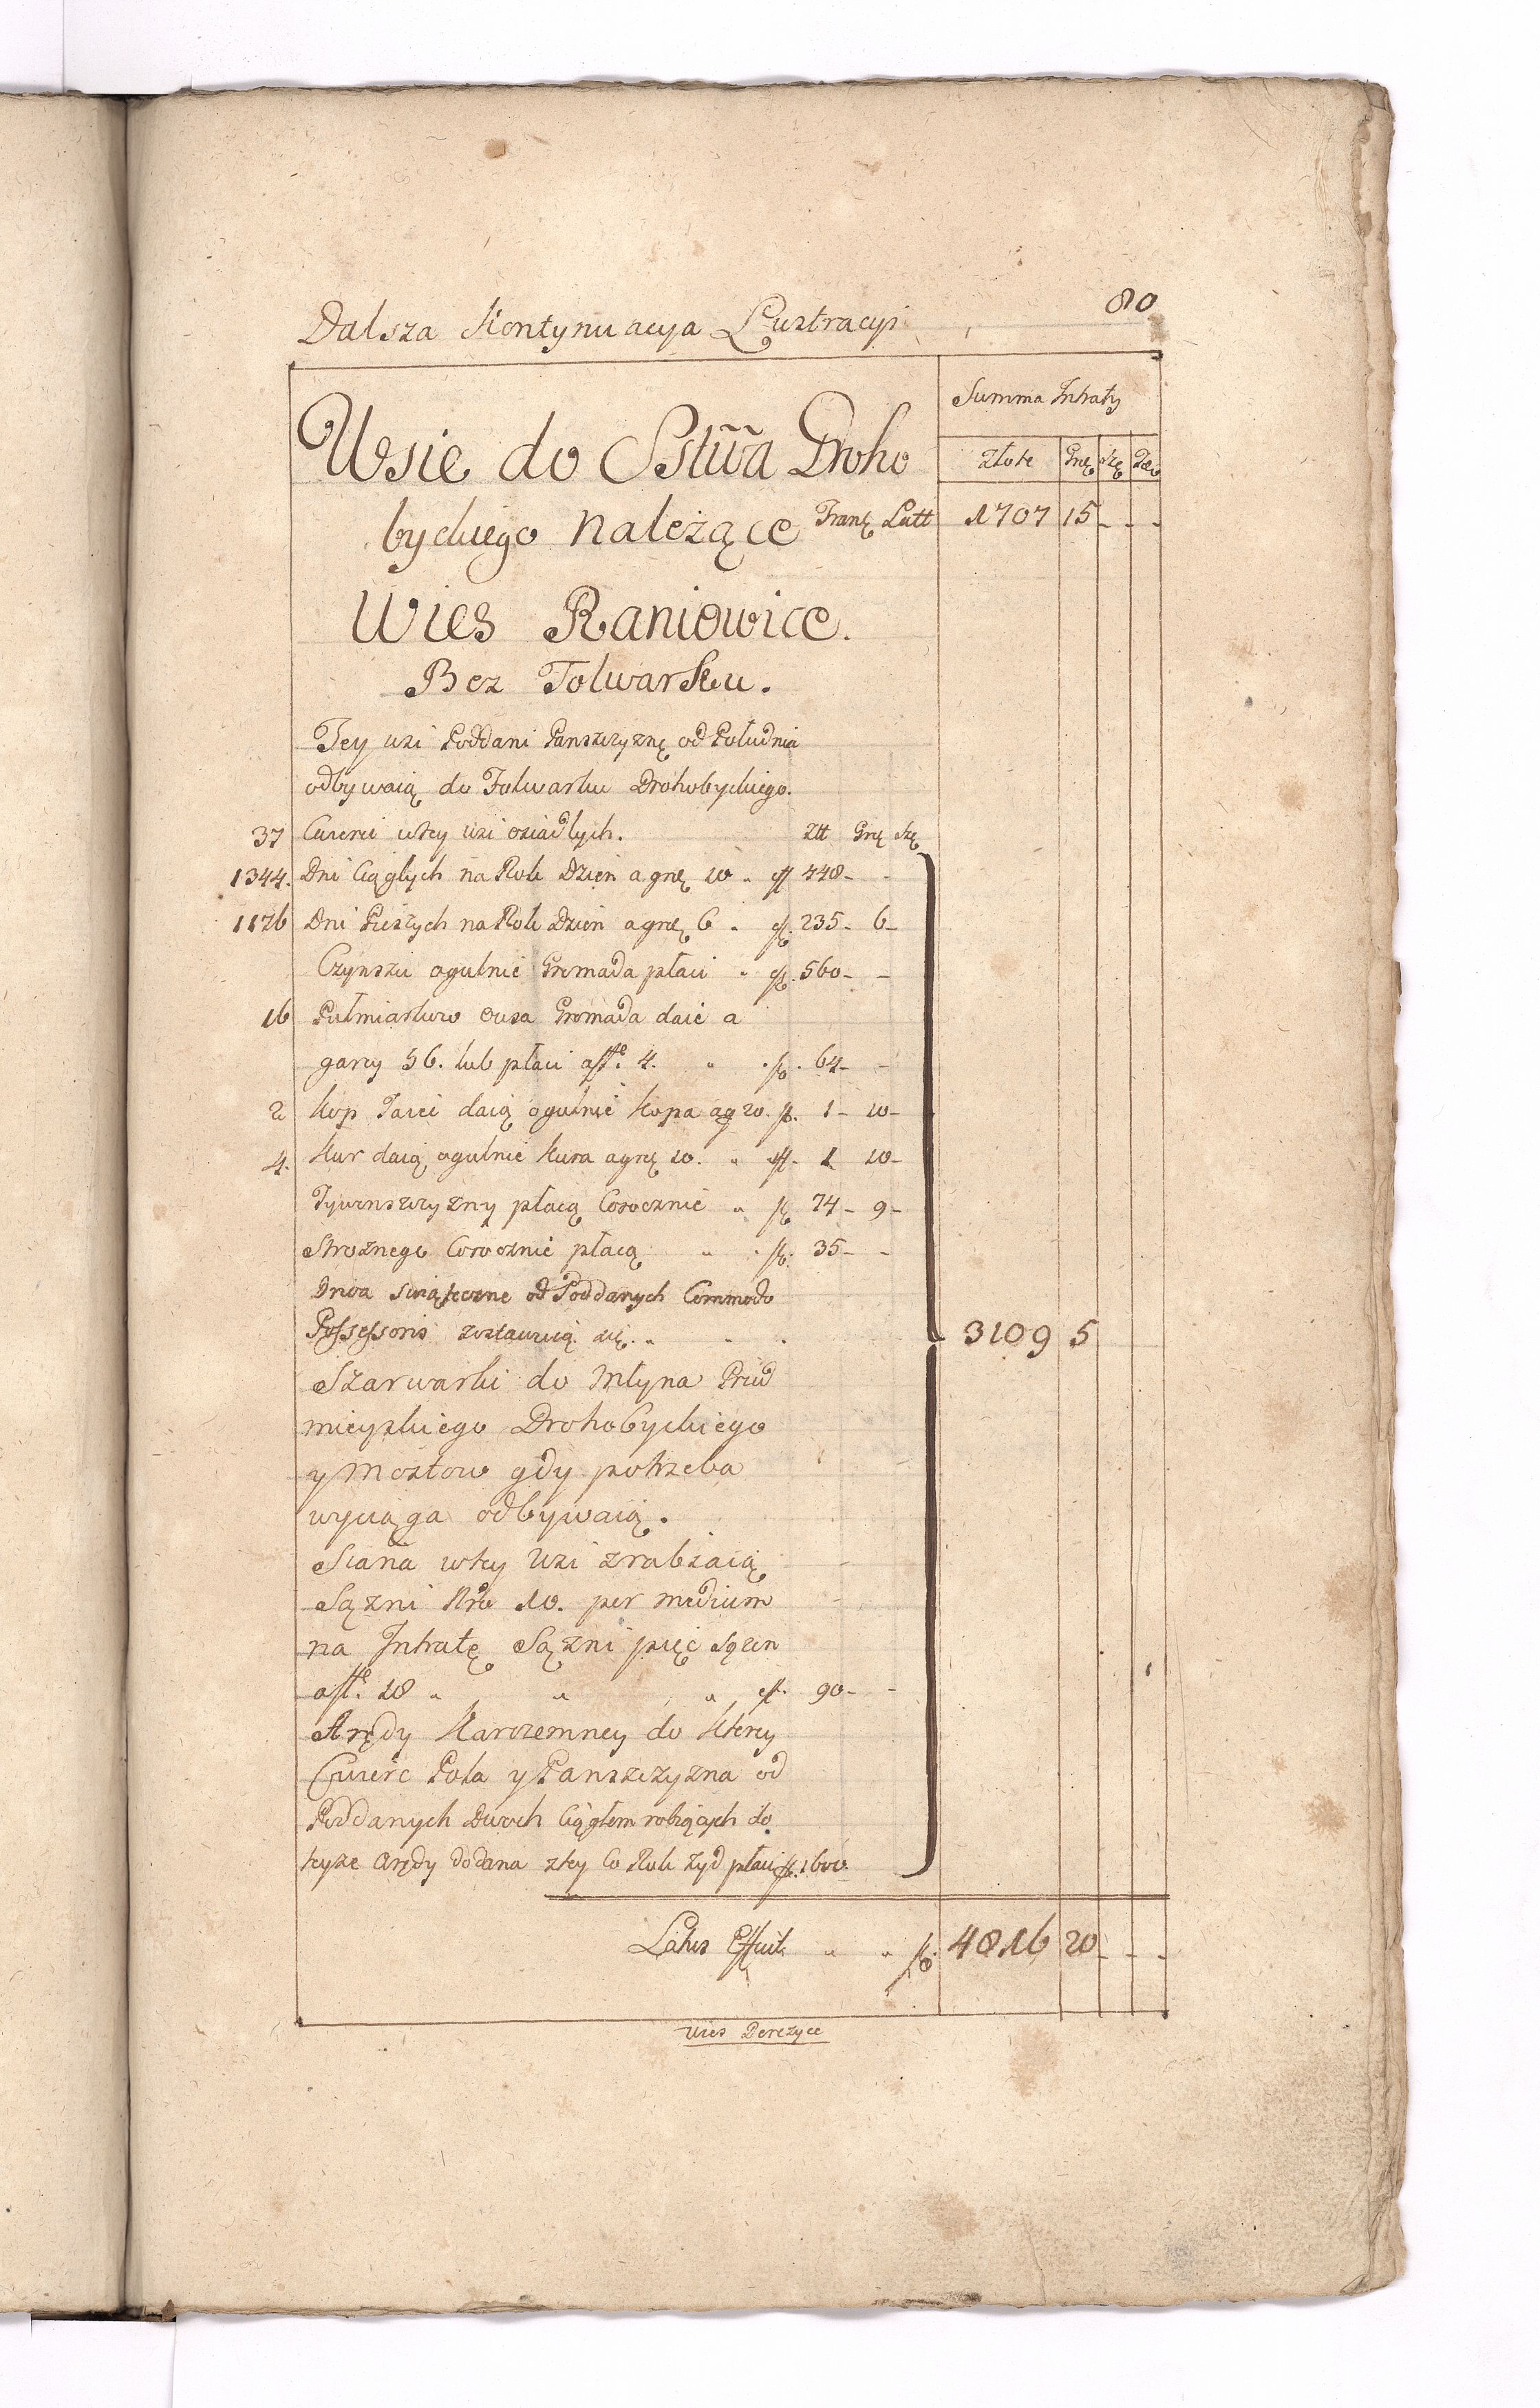 80
Dalsza Kontynuacya Lustracyi
Summa Intraty
Wsie do Sstwa Droho
złote Grę Szę
byckiego Należące Tranę Latt 1707 15 - - -
Wies Raniowice.
Bez Folwarku.
Tey wsi Poddani Panszczyznę od Południa
odbywaią do Folwarku Drohobyckiego.
37 Cwierci wtey wsi osiadłych. Złt Grę Szę
1344. Dni Ciągłych na Rok Dzien a grę 10 " fl 448 - -
1176 Dni Pieszych na Rok Dzien a grę 6 " fl. 235 - 6 -
Czynszu ogulnie Gromada płaci " fl. 560 - -
16 Pułmiarkow Owsa Gromada daie a
garcy 56. lub płaci a fl. 4. " fl. 64 - -
2 Kop Jaiec daią ogulnie Kopa a g 20. fl. 1 - 10 -
4. Kur daią ogulnie Kura a grę 10. " fl. 1 10 -
Tywonszczyzny płacą Corocznie " fl 74 - 9 -
Stroznego Corocznie płacą " fl. 35 - -
Drwa swiąteczne od Poddanych Commodo
Possessoris zostawuią się. " 3109 5
Szarwarki do Młyna Przed
mieyskiego Drohobyckiego
y Mostow gdy potrzeba
wyciąga odbywaią.
Siana wtey Wsi zrabiaią
Sązni Nro 10. per medium
na Intratę Sązni pięc Sązen
a fl. 18 " " " fl. 90 - -
Arędy Karczemney do Ktorey
Cwierc Pola y Panszczyzna od
Poddanych Dwoch Ciągłem robiących do
teyze Arędy dodana ztey Co Rok Zyd płaci fl. 1600.
Latus Effuit " " fl. 4816 20 - - -
Wies Derezyce